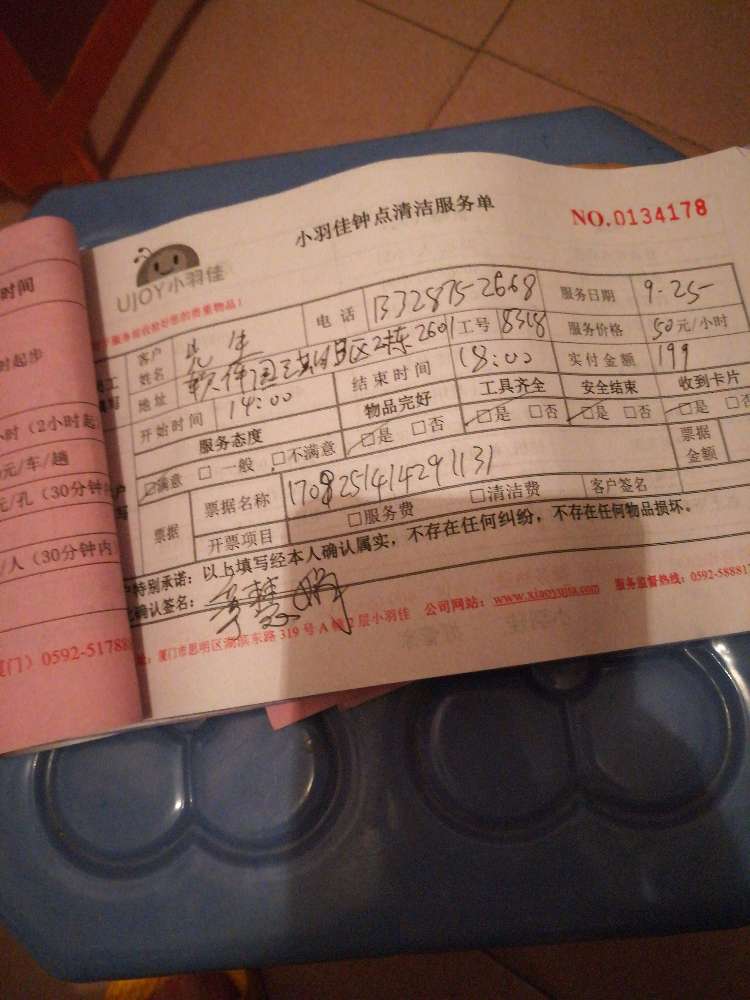 小羽佳钟点清洁服务单
NO.0134178
UJOY小羽佳
客户姓名 先生 电话 服务日期 9.25
地址 2栋2601 工号 8318 服务价格 50元/小时
开始时间 14:00 结束时间 18:00 实付金额 199
服务态度 物品完好 工具齐全 安全结束 收到卡片
□满意 □一般 □不满意 □是 □否 □是 □否 □是 □否 □是 □否
票据 票据名称 票据金额
开票项目 □服务费 □清洁费 客户签名
特别承诺：以上填写经本人确认属实，不存在任何纠纷，不存在任何物品损坏。
确认签名：
厦门市思明区湖滨东路319号A幢2层小羽佳 公司网站：www.xiaoyujia.com 服务监督热线：0592-58881
时间
时起步
时（2小时起
元/车/趟
元/孔（30分钟
/人（30分钟内）
厦门）0592-51788